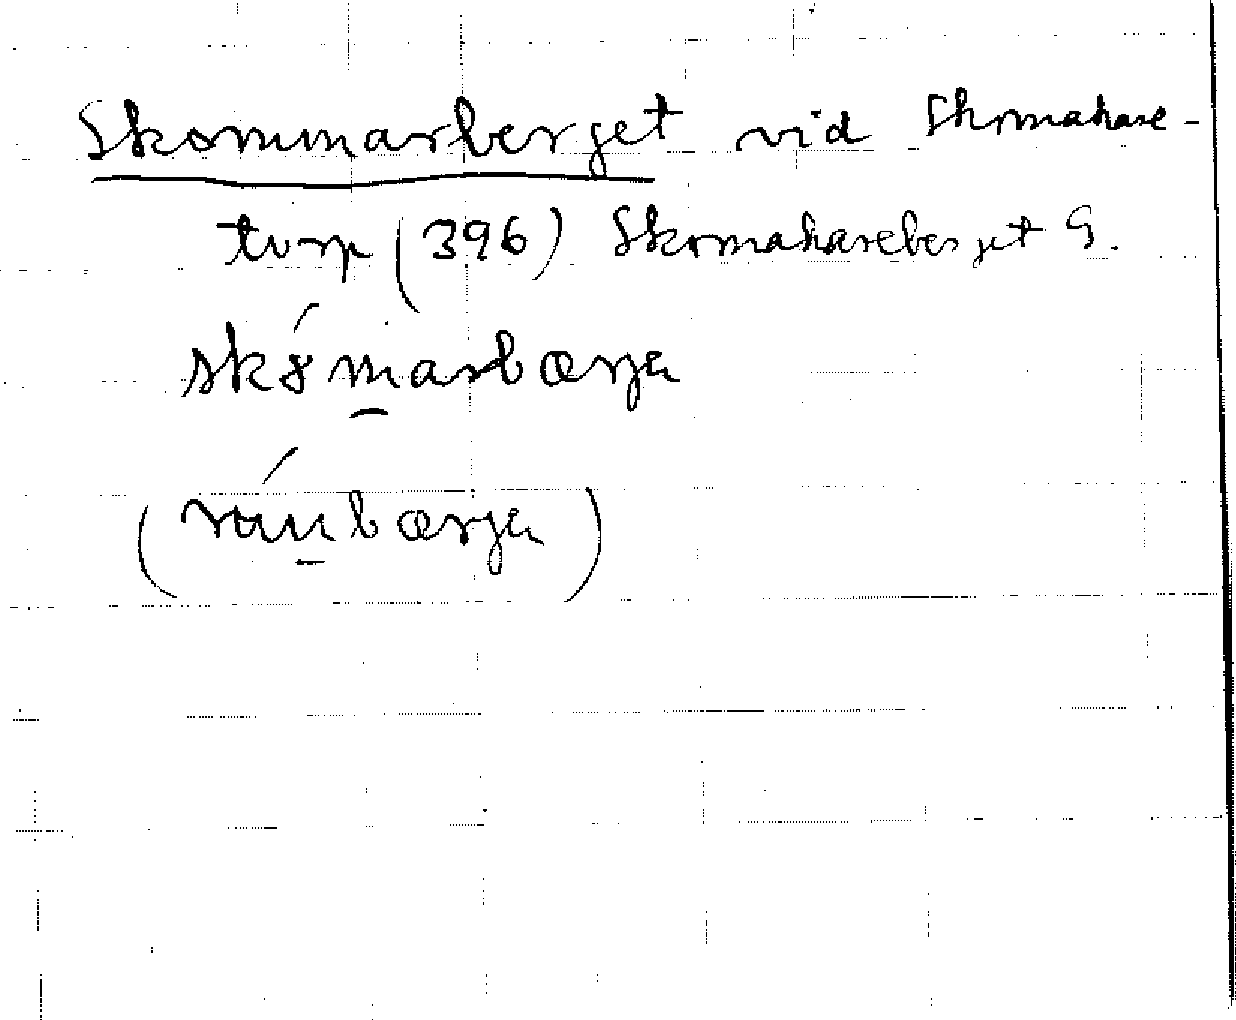 Skommarberget vid Skomakare-
torp (396) Skomakareberget G.
sk8́m̲arbærjə
(rúu̲bærjə)